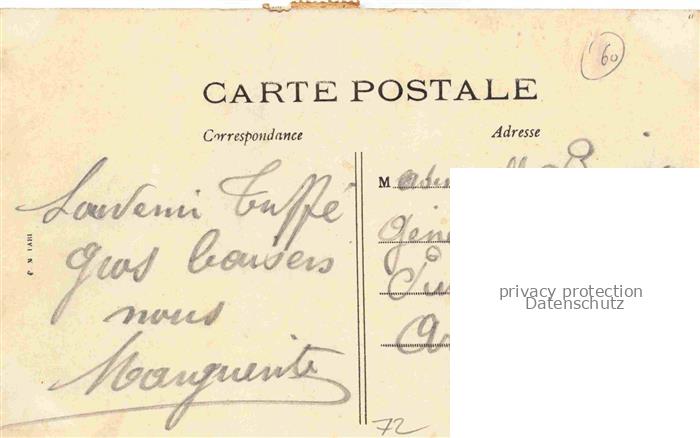 60
CARTE POSTALE
Correspondance
Adresse
Souvenir Tuffé
gros baisers
nous
Marguerite
M
privacy protection
Datenschutz
72